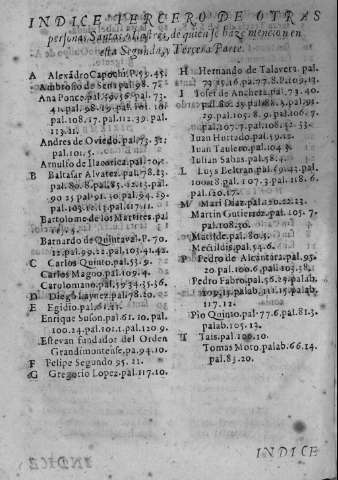 INDICE TERCERO DE OTRAS
personas Santas, e Ilustres, de quien se haze mencion en
esta Segunda, y Tercera Parte.
A Alexãdro Capochi. P.59.45.
Ambrosio de Sena pal.98.
Ana Ponce.pal.59.56.pal.73.
41.pal.98.19.pal.101.10.
pal.108.17.pal.112.39.pal.
113.11.
Andres de Oviedo.p.73.32.
pal.101.5.
Arnulfo de
B Baltasar Alvarez.pal.78.23.
pal.80.8.
90.25
pal.103.
Bartolomo de los Martires.pal
Barnardo de Quintaval.P.70.
12.pal.99.12.pal.103.41.42.
C Carlos Quinto.pal.53.9.
Carlos Magno.pal.109.4.
Carolomano.pal.59 34.35.36.
D Diego Laynez.pal.78.20.
E Egidio.pal.61.17.
Enrique Suson.pal.61.10.pal.
100.24.pal.101.1.pal.120.9.
Estevan fundador del Orden
Grandimontense, pa.94.10.
F Felipe Segundo 95.22.
G Gregorio Lopez.pal.117.10.
H Hernando de Talavera.pal.
73.25.16.pal.77.8.P.109.13.
I Josef de Ancheta.pal.73.40.
29.pal.105.8.
pal.107.7.pal.108.52.53.
Juan Hurtado.pal.59.12.
Juan Taulero.pal.104.3.
Iulian Sabas.pal.58.4.
L Luys Beltran.pal.59.43.pal.
100.18.pal.107.3.pal.118.6.
pal.120.17.
M Mari Diaz.pal.20.22.23.
Martin Gutierrez.pal.105.7.
pal.108.30.
Matilde.pal.80.5.
Mechildis.pal.54.6.
P Pedro de Alcantara.pal.95.
20.pal.100.6.pal.103.58.
Pedro Fabro.pal.56.29.palab.
109.13.palab.111.15.palab.
117.12.
Pio Quinto.pal.77.6.pal.81.3.
palab.105.13.
T Tais.pal.100.10.
Tomas Moro.palab.66.14.
pal.83.20.
INDICE